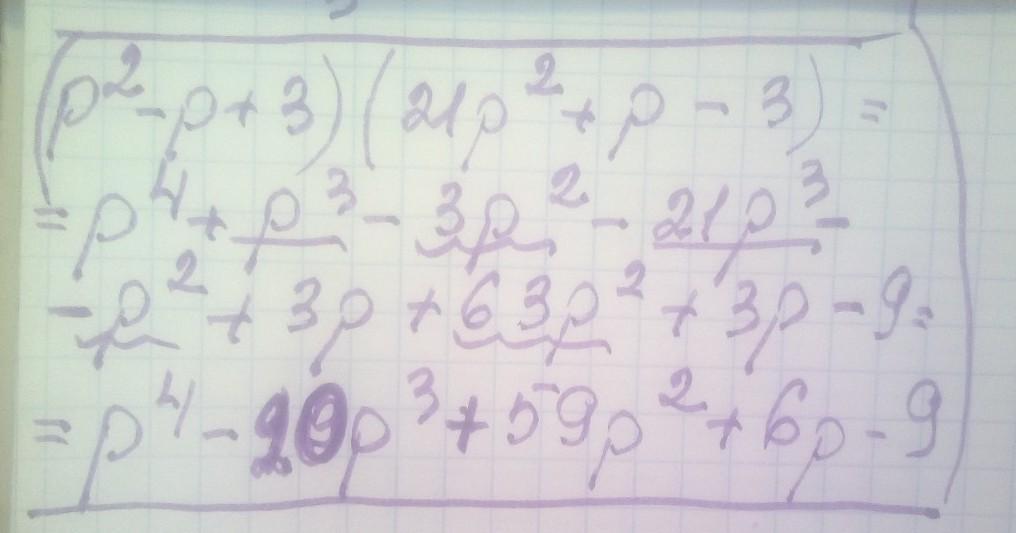 (p² - p + 3)(21p² + p - 3) =
= p⁴ + p³ - 3p² - 21p³ -
- p² + 3p + 63p² + 3p - 9 =
= p⁴ - 20p³ + 59p² + 6p - 9